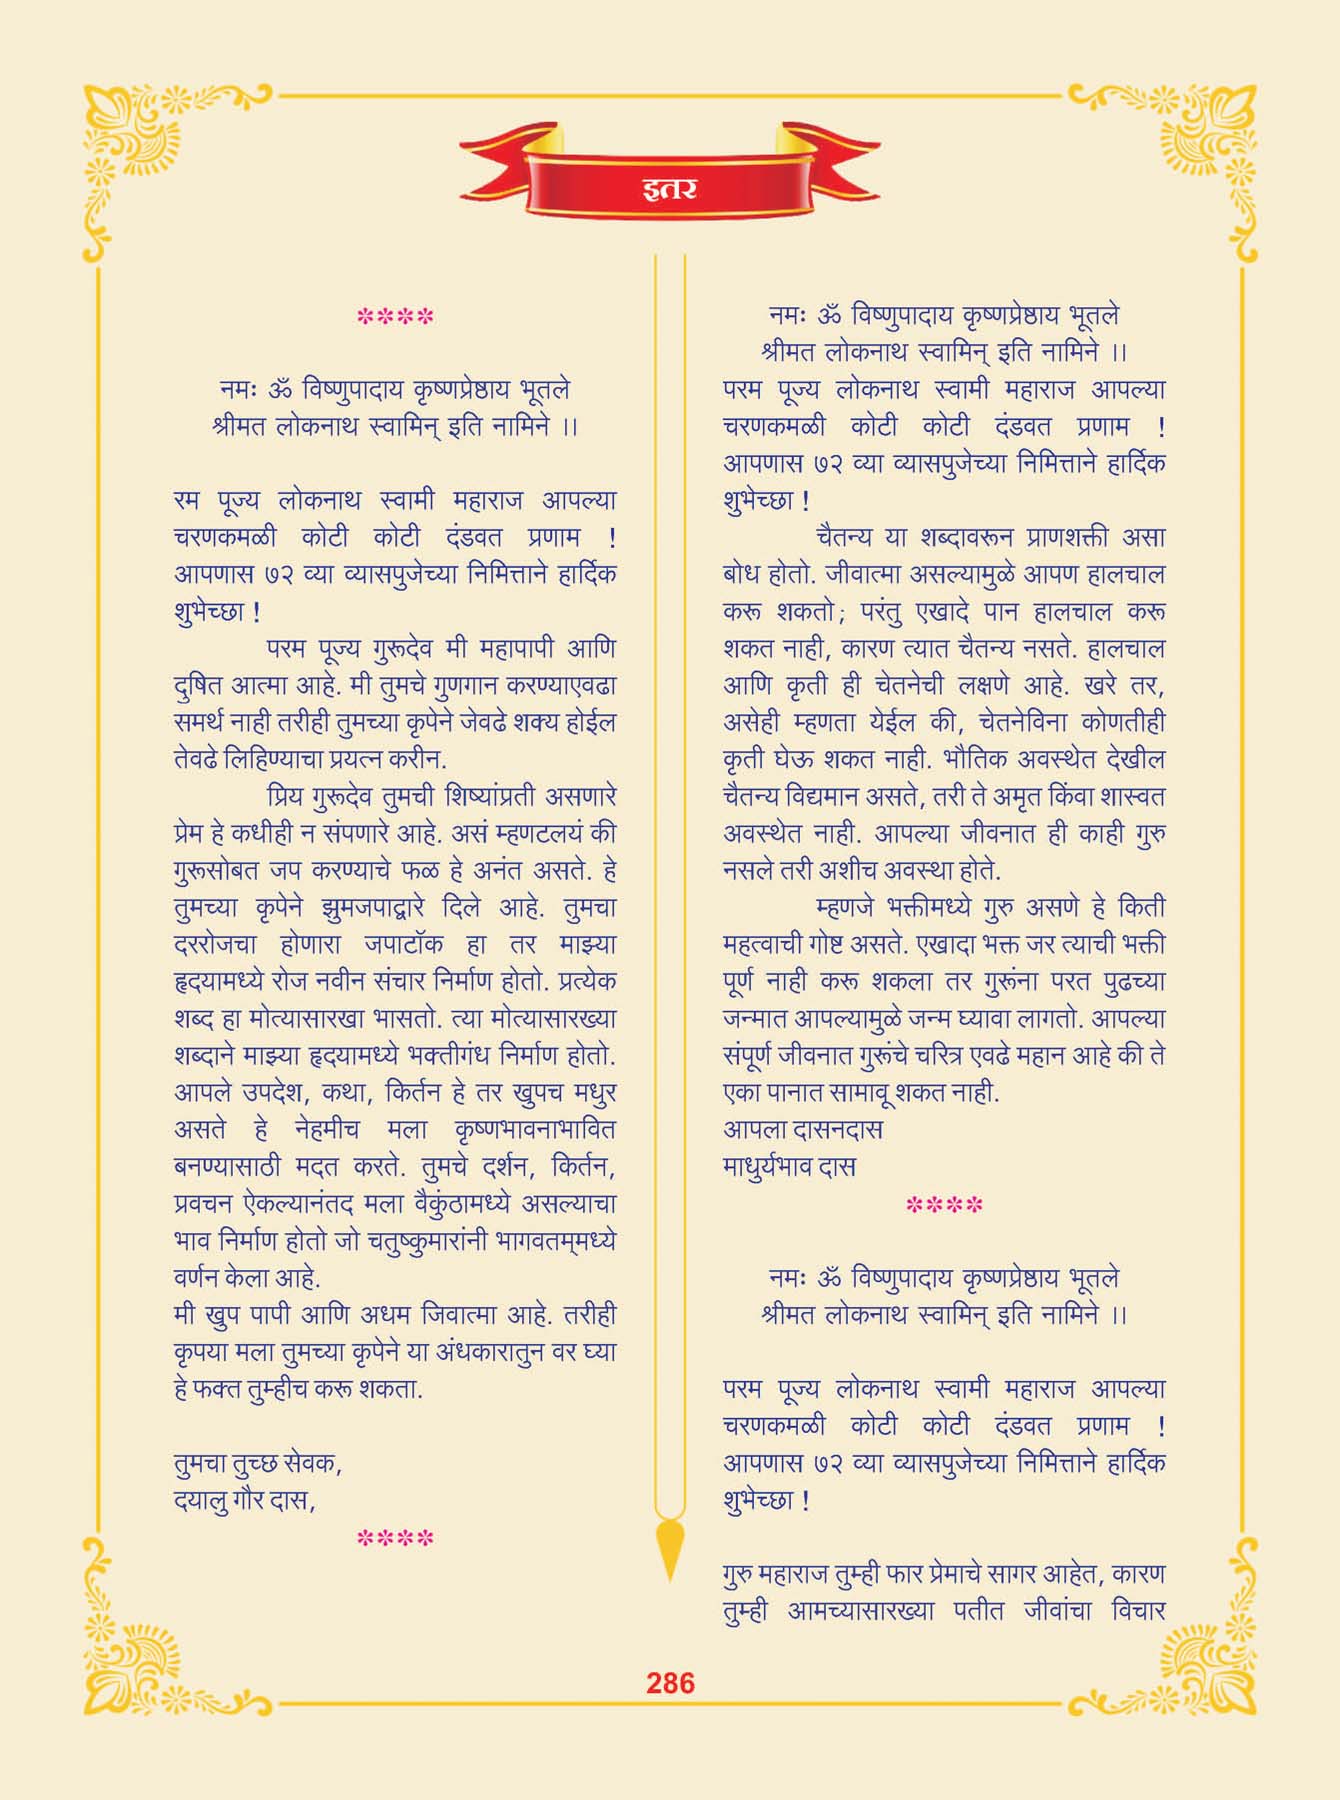 इतर
****
नमः ॐ विष्णुपादाय कृष्णप्रेष्ठाय भूतले
श्रीमत लोकनाथ स्वामिन् इति नामिने ।।
रम पूज्य लोकनाथ स्वामी महाराज आपल्या
चरणकमळी कोटी कोटी दंडवत प्रणाम !
आपणास ७२ व्या व्यासपुजेच्या निमित्ताने हार्दिक
शुभेच्छा !
परम पूज्य गुरूदेव मी महापापी आणि
दुषित आत्मा आहे. मी तुमचे गुणगान करण्याएवढा
समर्थ नाही तरीही तुमच्या कृपेने जेवढे शक्य होईल
तेवढे लिहिण्याचा प्रयत्न करीन.
प्रिय गुरूदेव तुमची शिष्यांप्रती असणारे
प्रेम हे कधीही न संपणारे आहे. असं म्हणटलयं की
गुरूसोबत जप करण्याचे फळ हे अनंत असते. हे
तुमच्या कृपेने झुमजपाद्वारे दिले आहे. तुमचा
दररोजचा होणारा जपाटॉक हा तर माझ्या
हृदयामध्ये रोज नवीन संचार निर्माण होतो. प्रत्येक
शब्द हा मोत्यासारखा भासतो. त्या मोत्यासारख्या
शब्दाने माझ्या हृदयामध्ये भक्तीगंध निर्माण होतो.
आपले उपदेश, कथा, किर्तन हे तर खुपच मधुर
असते हे नेहमीच मला कृष्णभावनाभावित
बनण्यासाठी मदत करते. तुमचे दर्शन, किर्तन,
प्रवचन ऐकल्यानंतद मला वैकुंठामध्ये असल्याचा
भाव निर्माण होतो जो चतुष्कुमारांनी भागवतम्‌मध्ये
वर्णन केला आहे.
मी खुप पापी आणि अधम जिवात्मा आहे. तरीही
कृपया मला तुमच्या कृपेने या अंधकारातुन वर घ्या
हे फक्त तुम्हीच करू शकता.
तुमचा तुच्छ सेवक,
दयालु गौर दास,
****
नमः ॐ विष्णुपादाय कृष्णप्रेष्ठाय भूतले
श्रीमत लोकनाथ स्वामिन् इति नामिने ।।
परम पूज्य लोकनाथ स्वामी महाराज आपल्या
चरणकमळी कोटी कोटी दंडवत प्रणाम !
आपणास ७२ व्या व्यासपुजेच्या निमित्ताने हार्दिक
शुभेच्छा !
चैतन्य या शब्दावरून प्राणशक्ती असा
बोध होतो. जीवात्मा असल्यामुळे आपण हालचाल
करू शकतो; परंतु एखादे पान हालचाल करू
शकत नाही, कारण त्यात चैतन्य नसते. हालचाल
आणि कृती ही चेतनेची लक्षणे आहे. खरे तर,
असेही म्हणता येईल की, चेतनेविना कोणतीही
कृती घेऊ शकत नाही. भौतिक अवस्थेत देखील
चैतन्य विद्यमान असते, तरी ते अमृत किंवा शास्वत
अवस्थेत नाही. आपल्या जीवनात ही काही गुरु
नसले तरी अशीच अवस्था होते.
म्हणजे भक्तीमध्ये गुरु असणे हे किती
महत्वाची गोष्ट असते. एखादा भक्त जर त्याची भक्ती
पूर्ण नाही करू शकला तर गुरूंना परत पुढच्या
जन्मात आपल्यामुळे जन्म घ्यावा लागतो. आपल्या
संपूर्ण जीवनात गुरूंचे चरित्र एवढे महान आहे की ते
एका पानात सामावू शकत नाही.
आपला दासनदास
माधुर्यभाव दास
****
नमः ॐ विष्णुपादाय कृष्णप्रेष्ठाय भूतले
श्रीमत लोकनाथ स्वामिन् इति नामिने ।।
परम पूज्य लोकनाथ स्वामी महाराज आपल्या
चरणकमळी कोटी कोटी दंडवत प्रणाम !
आपणास ७२ व्या व्यासपुजेच्या निमित्ताने हार्दिक
शुभेच्छा !
गुरु महाराज तुम्ही फार प्रेमाचे सागर आहेत, कारण
तुम्ही आमच्यासारख्या पतीत जीवांचा विचार
286